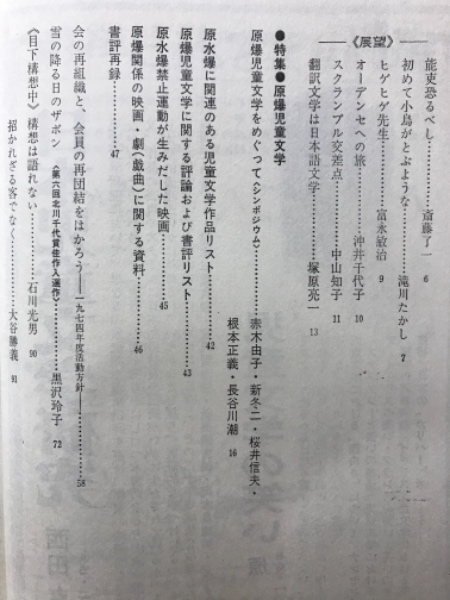 《展望》
能吏恐るべし……斎藤了一 6
初めて小鳥がとぶような……滝川たかし 7
ヒゲヒゲ先生……富永敏治 9
オーデンセへの旅……沖井千代子 10
スクランブル交差点……中山知子 11
翻訳文学は日本語文学……塚原亮一 13
●特集●原爆児童文学
原爆児童文学をめぐって〈シンポジウム〉……赤木由子・新冬二・桜井信夫・
根本正義・長谷川潮 16
原水爆に関連のある児童文学作品リスト……42
原爆児童文学に関する評論および書評リスト……43
原水爆禁止運動が生みだした映画……45
原爆関係の映画・劇(戯曲)に関する資料……46
書評再録……47
会の再組織と、会員の再団結をはかろう——一九七四年度活動方針——58
雪の降る日のザボン〈第六回北川千代賞佳作入選作〉……黒沢玲子 72
《目下構想中》構想は語れない……石川光男 90
招かれざる客でなく……大谷勝義 91